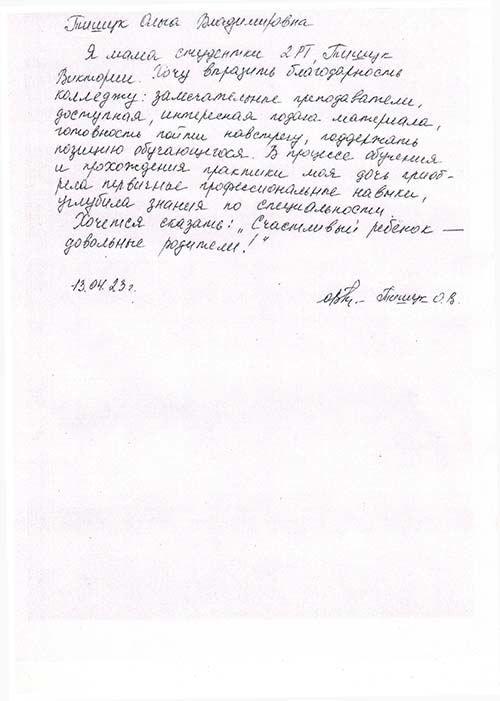 Тищук Ольга Владимировна
Я мама студентки 2РТ, Тищук
Виктории. Хочу выразить благодарность
колледжу: замечательные преподаватели,
доступная, интересная подача материала,
готовность пойти навстречу, поддержать
позицию обучающегося. В процессе обучения
и прохождения практики моя дочь приоб-
рела первичные профессиональные навыки,
углубила знания по специальности.
Хочется сказать: „Счастливый ребёнок —
довольные родители!"
13.04.23г. Тищук О.В.